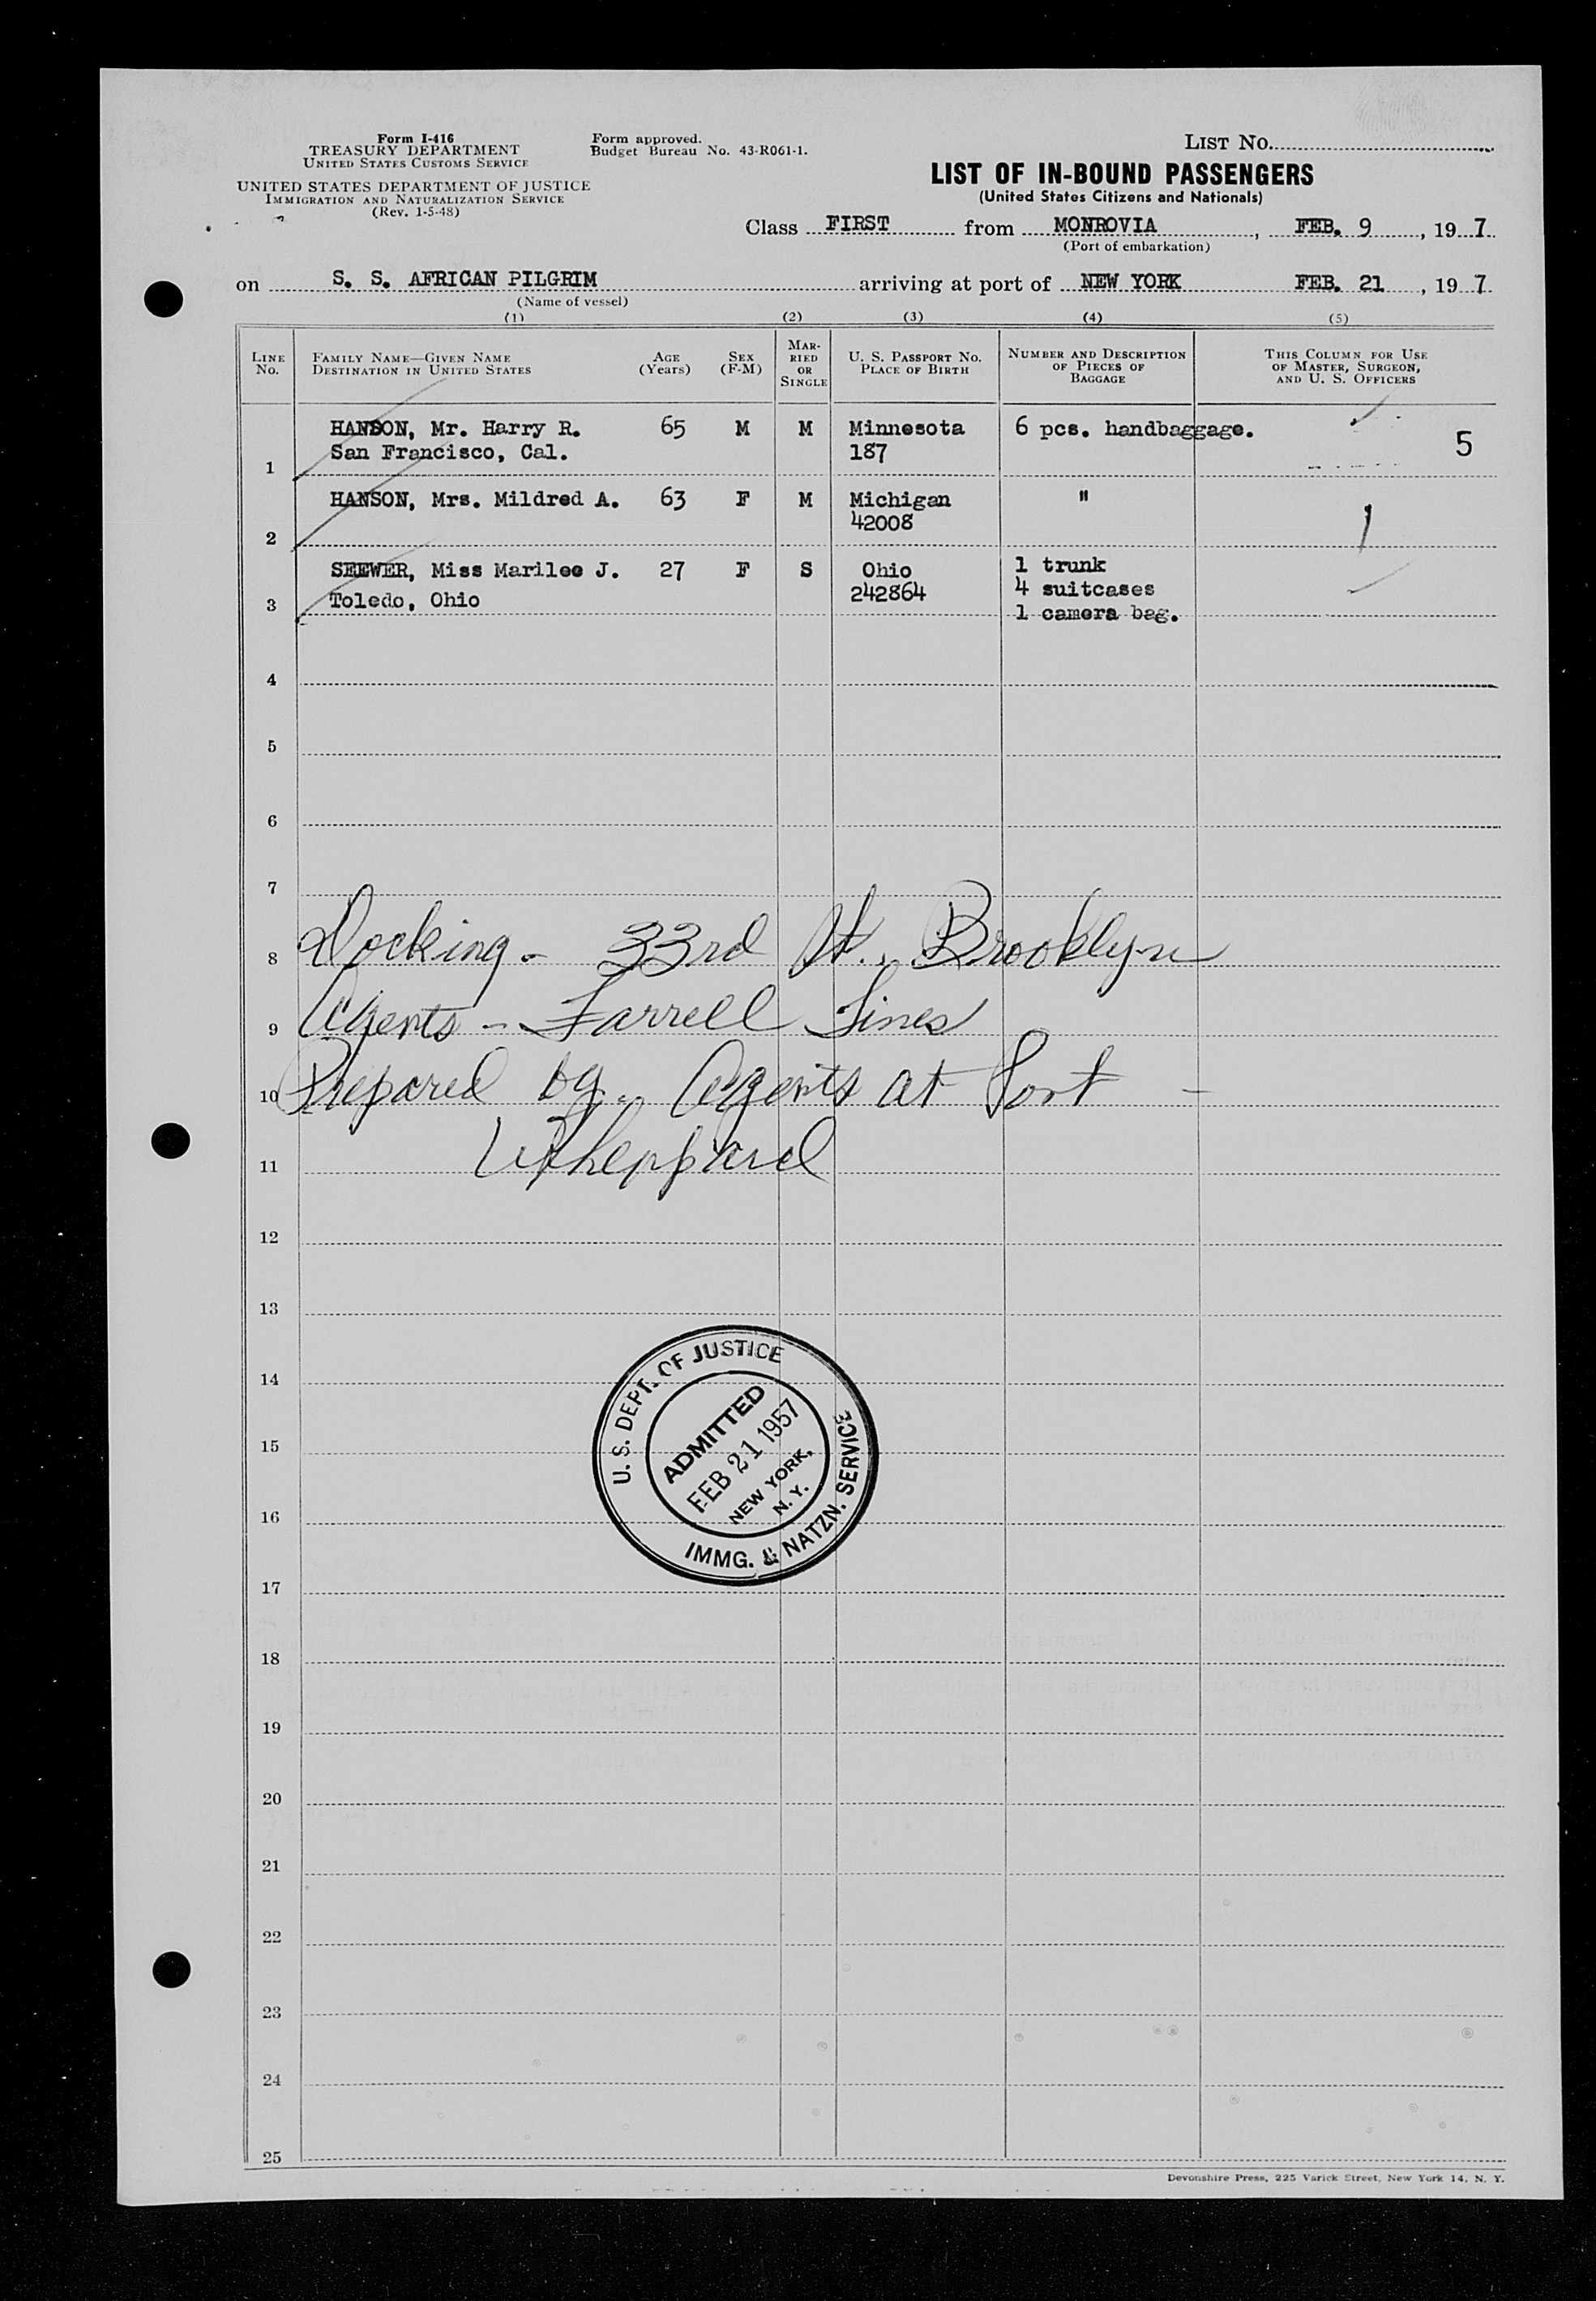 Form I-416
TREASURY DEPARTMENT
UNITED STATES CUSTOMS SERVICE
UNITED STATES DEPARTMENT OF JUSTICE
IMMIGRATION AND NATURALIZATION SERVICE
(Rev. 1-5-48)
Form approved.
Budget Bureau No. 43-R061-1.
LIST NO.
LIST OF IN-BOUND PASSENGERS
(United States Citizens and Nationals)
Class FIRST from MONROVIA, FEB. 9, 19 7
(Port of embarkation)
on S. S. AFRICAN PILGRIM arriving at port of NEW YORK FEB. 21, 19 7
(Name of vessel)
(1) (2) (3) (4) (5)
LINE NO. FAMILY NAME—GIVEN NAME DESTINATION IN UNITED STATES AGE (Years) SEX (F-M) MARRIED OR SINGLE U. S. PASSPORT NO. PLACE OF BIRTH NUMBER AND DESCRIPTION OF PIECES OF BAGGAGE THIS COLUMN FOR USE OF MASTER, SURGEON, AND U. S. OFFICERS
HANSON, Mr. Harry R. 65 M M Minnesota 6 pcs. handbaggage. 5
1 San Francisco, Cal. 187
HANSON, Mrs. Mildred A. 63 F M Michigan "
2 42008
SEEWER, Miss Marilee J. 27 F S Ohio 1 trunk
Toledo, Ohio 242864 4 suitcases
3 1 camera bag.
4
5
6
7
8 Docking - 33rd St., Brooklyn
9 Agents - Farrell Lines
10 Prepared by Agents at Port -
11
12
13
14
15
16
17
18
19
20
21
22
23
24
25
U. S. DEPT. OF JUSTICE
ADMITTED
FEB 21 1957
NEW YORK,
N. Y.
IMMG. & NATZN. SERVICE
Devonshire Press, 225 Varick Street, New York 14, N. Y.